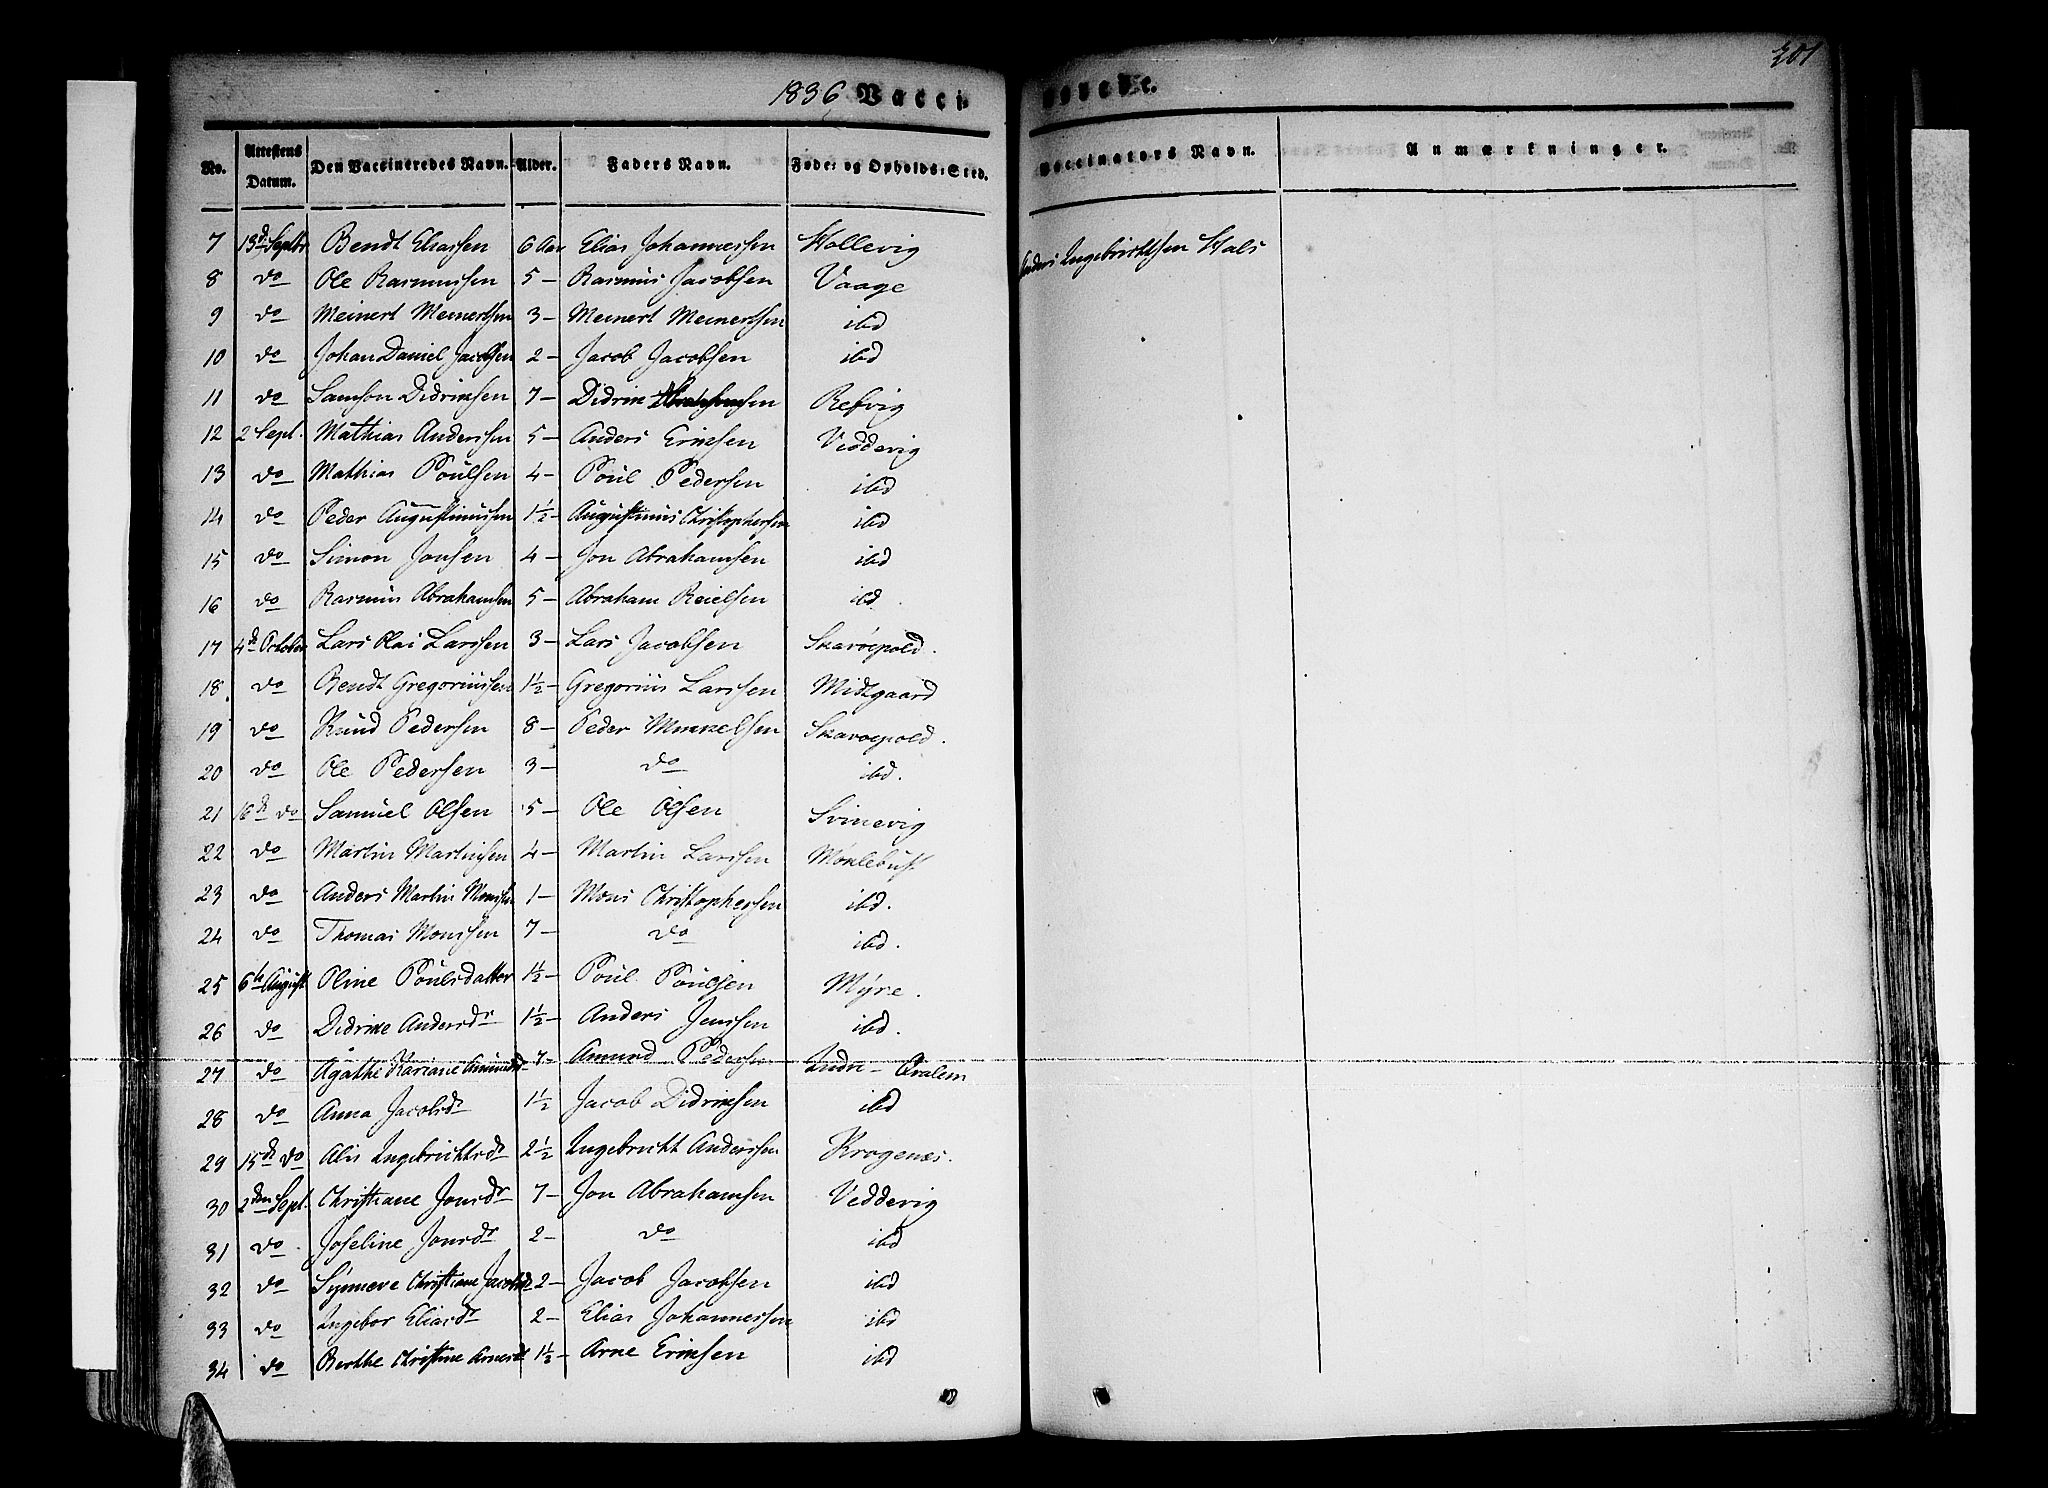 1836 Vacci-
nerede.
201
No. | Attestens Datum. | Den Vaccineredes Navn. | Alder. | Faders Navn. | Føde- og Opholds-Sted. | Vaccinators Navn. | Anmærkninger.
7 | 13d Septbr | Bendt Eliassen | 6 Aar | Elias Johannessen | Hollevig | Anders Ingebrichtsen Hals
8 | do | Ole Rasmussen | 5 – | Rasmus Jacobsen | Vaage
9 | do | Meinert Meinertsen | 3 – | Meinert Meinertsen | ibd
10 | do | Johan Daniel Jacobsen | 2 – | Jacob Jacobsen | ibd
11 | do | Samson Didriksen | 7 – | Didrik | Refvig
12 | 2 Sept. | Mathias Anderssen | 5 – | Anders Eriksen | Veddevig
13 | do | Mathias Poülsen | 4 – | Poül Pedersen | ibd
14 | do | Peder Augustinussen | 1½ – | Augustinus Christophersen | ibd
15 | do | Simon Jonsen | 4 – | Jon Abrahamsen | ibd
16 | do | Rasmüs Abrahamsen | 5 – | Abraham Reielsen | ibd.
17 | 4de October | Lars Olai Larssen | 3 – | Lars Jacobsen | Skavøepold.
18 | do | Bendt Gregoriussen | 1½ – | Gregorius Larssen | Midtgaard
19 | do | Knüd Pedersen | 8 – | Peder Mikkelsen | Skavøepold.
20 | do | Ole Pedersen | 3 – | do | ibd.
21 | 16de do | Samüel Olsen | 5 – | Ole Olsen | Svinevig
22 | do | Martin Martinsen | 4 – | Martin Larssen | Møklebüst
23 | do | Anders Martin Monssen | 1 – | Mons Christophersen | ibd.
24 | do | Thomas Monssen | 7 – | do | ibd.
25 | 6te Aügüst | Oline Poülsdatter | 1½ – | Poül Poülsen | Myre.
26 | do | Didrike Andersdr | 1½ – | Anders Jenssen | ibd.
27 | do | Agathe Kariane Amundsdr | 7 – | Amund Pedersen | Indre – Qvalem
28 | do | Anna Jacobsdr | 1½ | Jacob Didriksen | ibd
29 | 15de do | Alis Ingebrichtsdr | 2½ | Ingebricht Anderssen | Krogenæs.
30 | 2den Sept. | Christiane Jonsdr | 7 – | Jon Abrahamsen | Veddevig
31 | do. | Joseline Jonsdr | 2 – | do | ibd
32 | do | Synneve Christiane Jacobsdr | 2 – | Jacob Jacobsen | ibd
33 | do | Ingebor Eliasdr | 2 – | Elias Johannessen | ibd
34 | do | Berthe Christine Arnesdr | 1½ – | Arne Eriksen | ibd